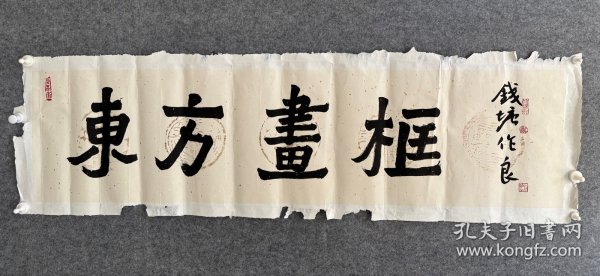 東方畫框
錢塘作良
孔夫子旧书网
www.kongfz.com